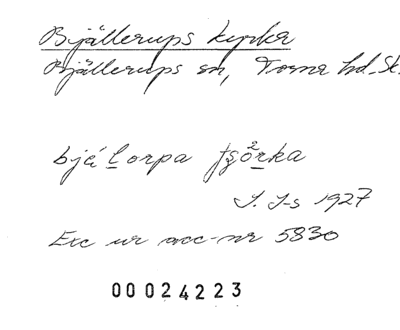 Bjällerups kyrka
Bjällerups sn, Torna hd. Sk.
bjä lorpa
J. J-s 1927
Exc ur acc-nr 5830
00024223